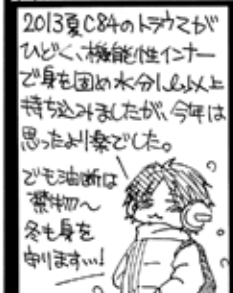 2013夏C84のトラウマが
ひどく、機能性インナー
で身を固め水分1.5L以上
持ち込みましたが、今年は
思ったより楽でした。
でも油断は
禁物〜
冬も身を
守ります…!